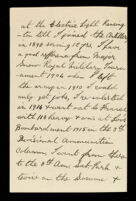 at the Electric Light Running
till I joined the Artillery
in 1898 serving 12 yrs I have
a good reference from Major
Snow Royal Military Tourn-
ament 1906 when I left
the army in 1910 I could
only get jobs, I re-enlisted
in 1914 & went out to France
with 118 heavy & was at first
Bombardment 1915 on the 8th
Divisional Ammunition
Column I went from there
to the 8th Am Sub Park &
twice on the Somme &